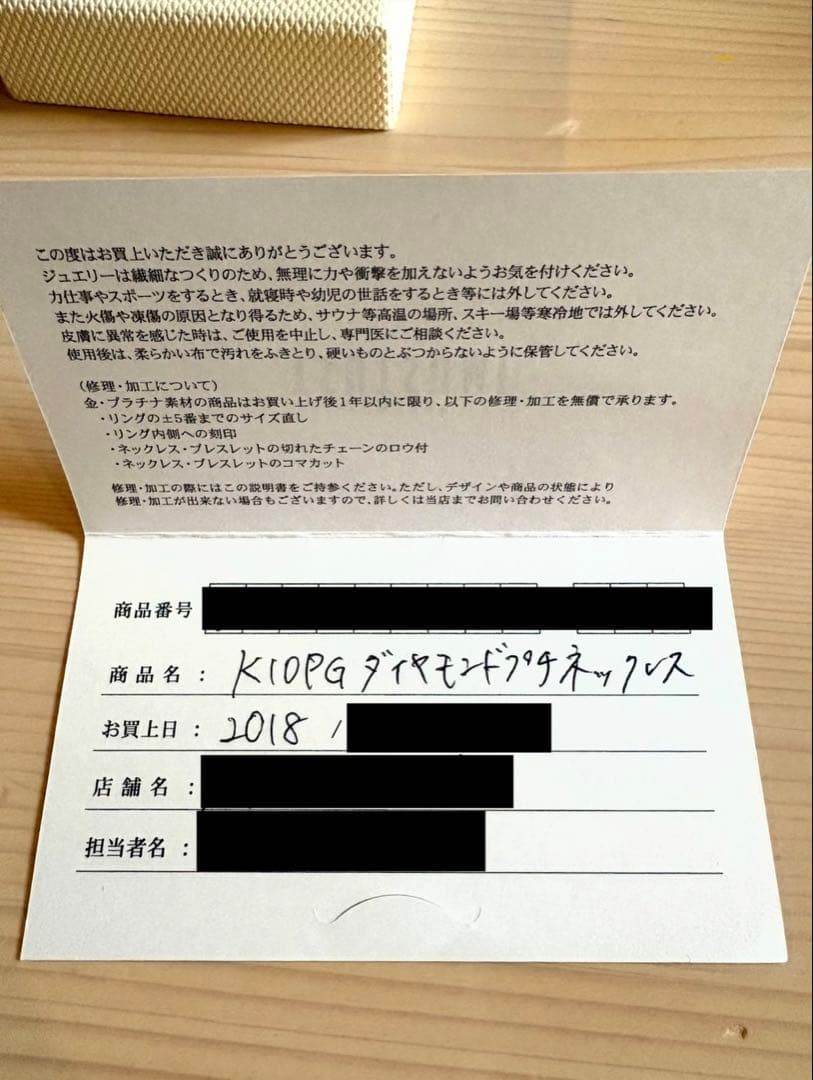 この度はお買上いただき誠にありがとうございます。
ジュエリーは繊細なつくりのため、無理に力や衝撃を加えないようお気を付けください。
力仕事やスポーツをするとき、就寝時や幼児の世話をするとき等には外してください。
また火傷や凍傷の原因となり得るため、サウナ等高温の場所、スキー場等寒冷地では外してください。
皮膚に異常を感じた時は、ご使用を中止し、専門医にご相談ください。
使用後は、柔らかい布で汚れをふきとり、硬いものとぶつからないように保管してください。
（修理・加工について）
金・プラチナ素材の商品はお買い上げ後1年以内に限り、以下の修理・加工を無償で承ります。
・リングの±5番までのサイズ直し
・リング内側への刻印
・ネックレス・ブレスレットの切れたチェーンのロウ付
・ネックレス・ブレスレットのコマカット
修理・加工の際にはこの説明書をご持参ください。ただし、デザインや商品の状態により
修理・加工が出来ない場合もございますので、詳しくは当店までお問い合わせください。
商品番号
商品名： K10PG ダイヤモンドプチネックレス
お買上日： 2018 /
店舗名：
担当者名：